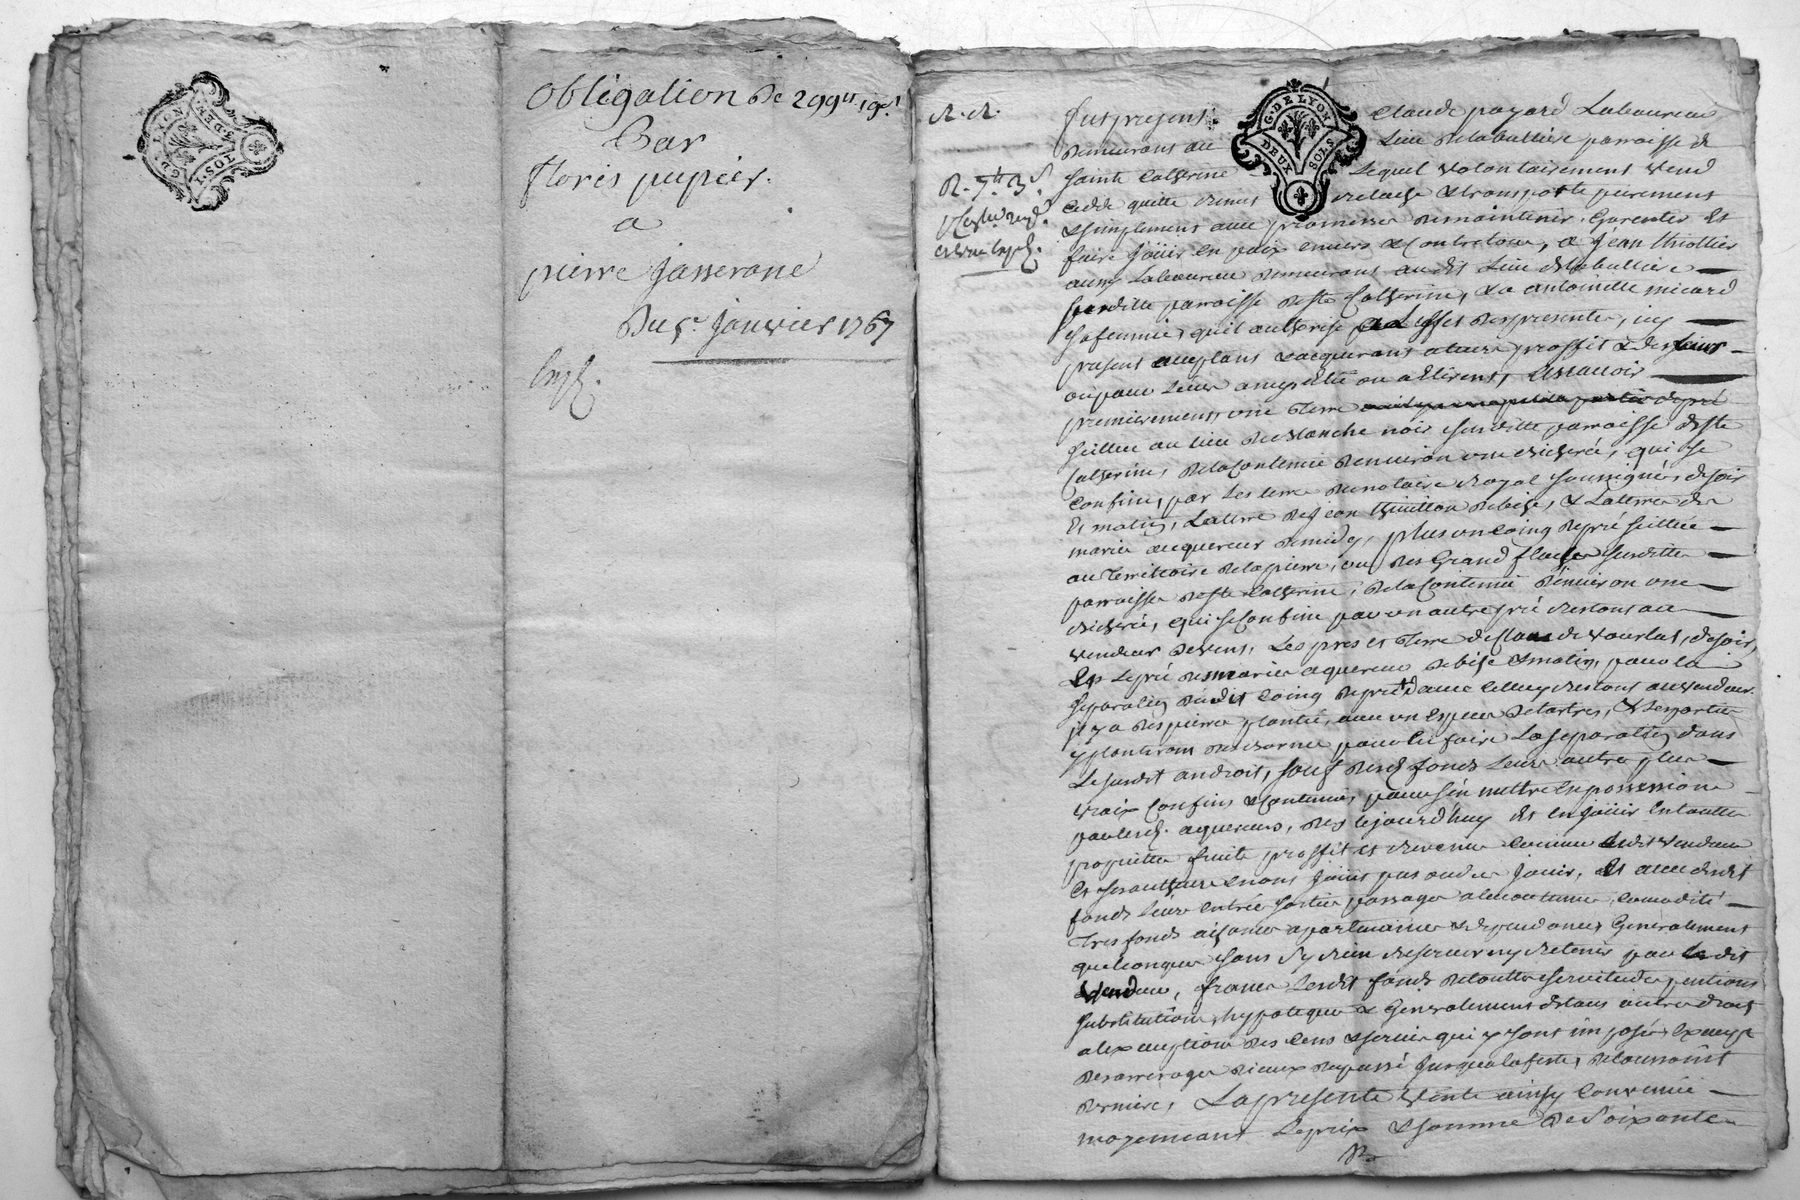 G. DE LYON
DEUX SOLS
Obligation De 299lt 19s
Par
floris pupier.
a
pierre Jasserane
Du 5e Janvier 1767
Exp.
R. R.
fut present Claude payard Laboureur
demeurant au Lieu de la bullière parroisse de
sainte Catherine Lequel volontairement vend
cedde quitte remet relache & transporte purement
& simplement avec promesse de maintenir, garentir et
faire joüir en paix envers & contre tous, a Jean thiollier
aussy Laboureur demeurant au dit Lieu de la bullière
susditte parroisse de ste Catherine, & a antoinette micard
sa femme, qu'il autherise a l'effet des presentes, icy
present acceptans & acquerans a leur proffit & des leurs
ou pour leurs amys elus ou a Elire, Assavoir
premierement, une Terre
scituee au lieu de planche noir susditte parroisse de ste
Catherine, de la Contenue d'environ une bicheree, qui se
Confine, par Les terre du notaire Royal soussigné, de soir
et matin, La terre de Jean thuillon de bize, & La terre des
mariés acquereurs de midy, plus un Coing de pré scittué
au territoire de la pierre, ou des Grand flache susditte
parroisse de ste Catherine, de la Contenue d'environ une
bicheree, qui se Confine par un autre pré restant au
vendeur de vent, Les prés et Terre de Claude vourlat, de soir,
Et Le pré des mariés aquereurs de bize & matin, pour la
separation dudit Coing de pré d'avec Celluy restant au vendeur
il y a des pierres plantée, avec un Espece de tartres, & Les parties
y planteront des bornes pour en faire La separation dans
Le susdit androit, sauf desd. fonds Leurs autres plus
vrais Confins & Contenue, pour s'en mettre en possession
par lesd. aquereurs, des ce jourd'huy et en joüir en toutte
proprietée fruits proffit et revenu Comme ledit vendeur
et ses autheurs en ont joüis pas ou deu jouir, Et avec desdit
fonds Leurs entrée sortie passages accoutumés, Comodité
Tres fonds aisances apartenances & dependances Generalement
quelconques sans s'y rien reserver ny retenir par le dit
vendeur, francs Lesdit fonds de touttes servitudes pentions
substitution, hypoteques & Generalement de tous autres droits
a l'exception des Cens & servis qui y sont imposés, Exempt
des arrerages d'iceux du passé jusqua la feste de toussaint
derniere, La presente vente ainsy Convenue
moyennant Le prix & somme de Soixante